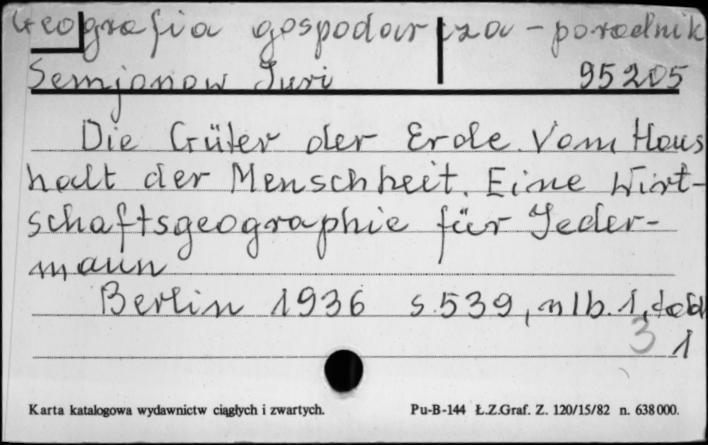 Geografia gospodarcza - poradnik
Semjonow Juri 95205
Die Güter der Erde. Vom Haus
halt der Menschheit. Eine Wirt-
schaftsgeographie für Jeder-
mann
Berlin 1936 s. 539, nlb. 1, tabl
3 1
Karta katalogowa wydawnictw ciągłych i zwartych. Pu-B-144 Ł.Z.Graf. Z. 120/15/82 n. 638000.